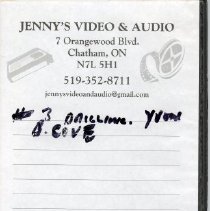 JENNY'S VIDEO & AUDIO
7 Orangewood Blvd.
Chatham, ON
N7L 5H1
519-352-8711
jennysvideoandaudio@gmail.com
# 3 DRILLING. YVON
D. COVE